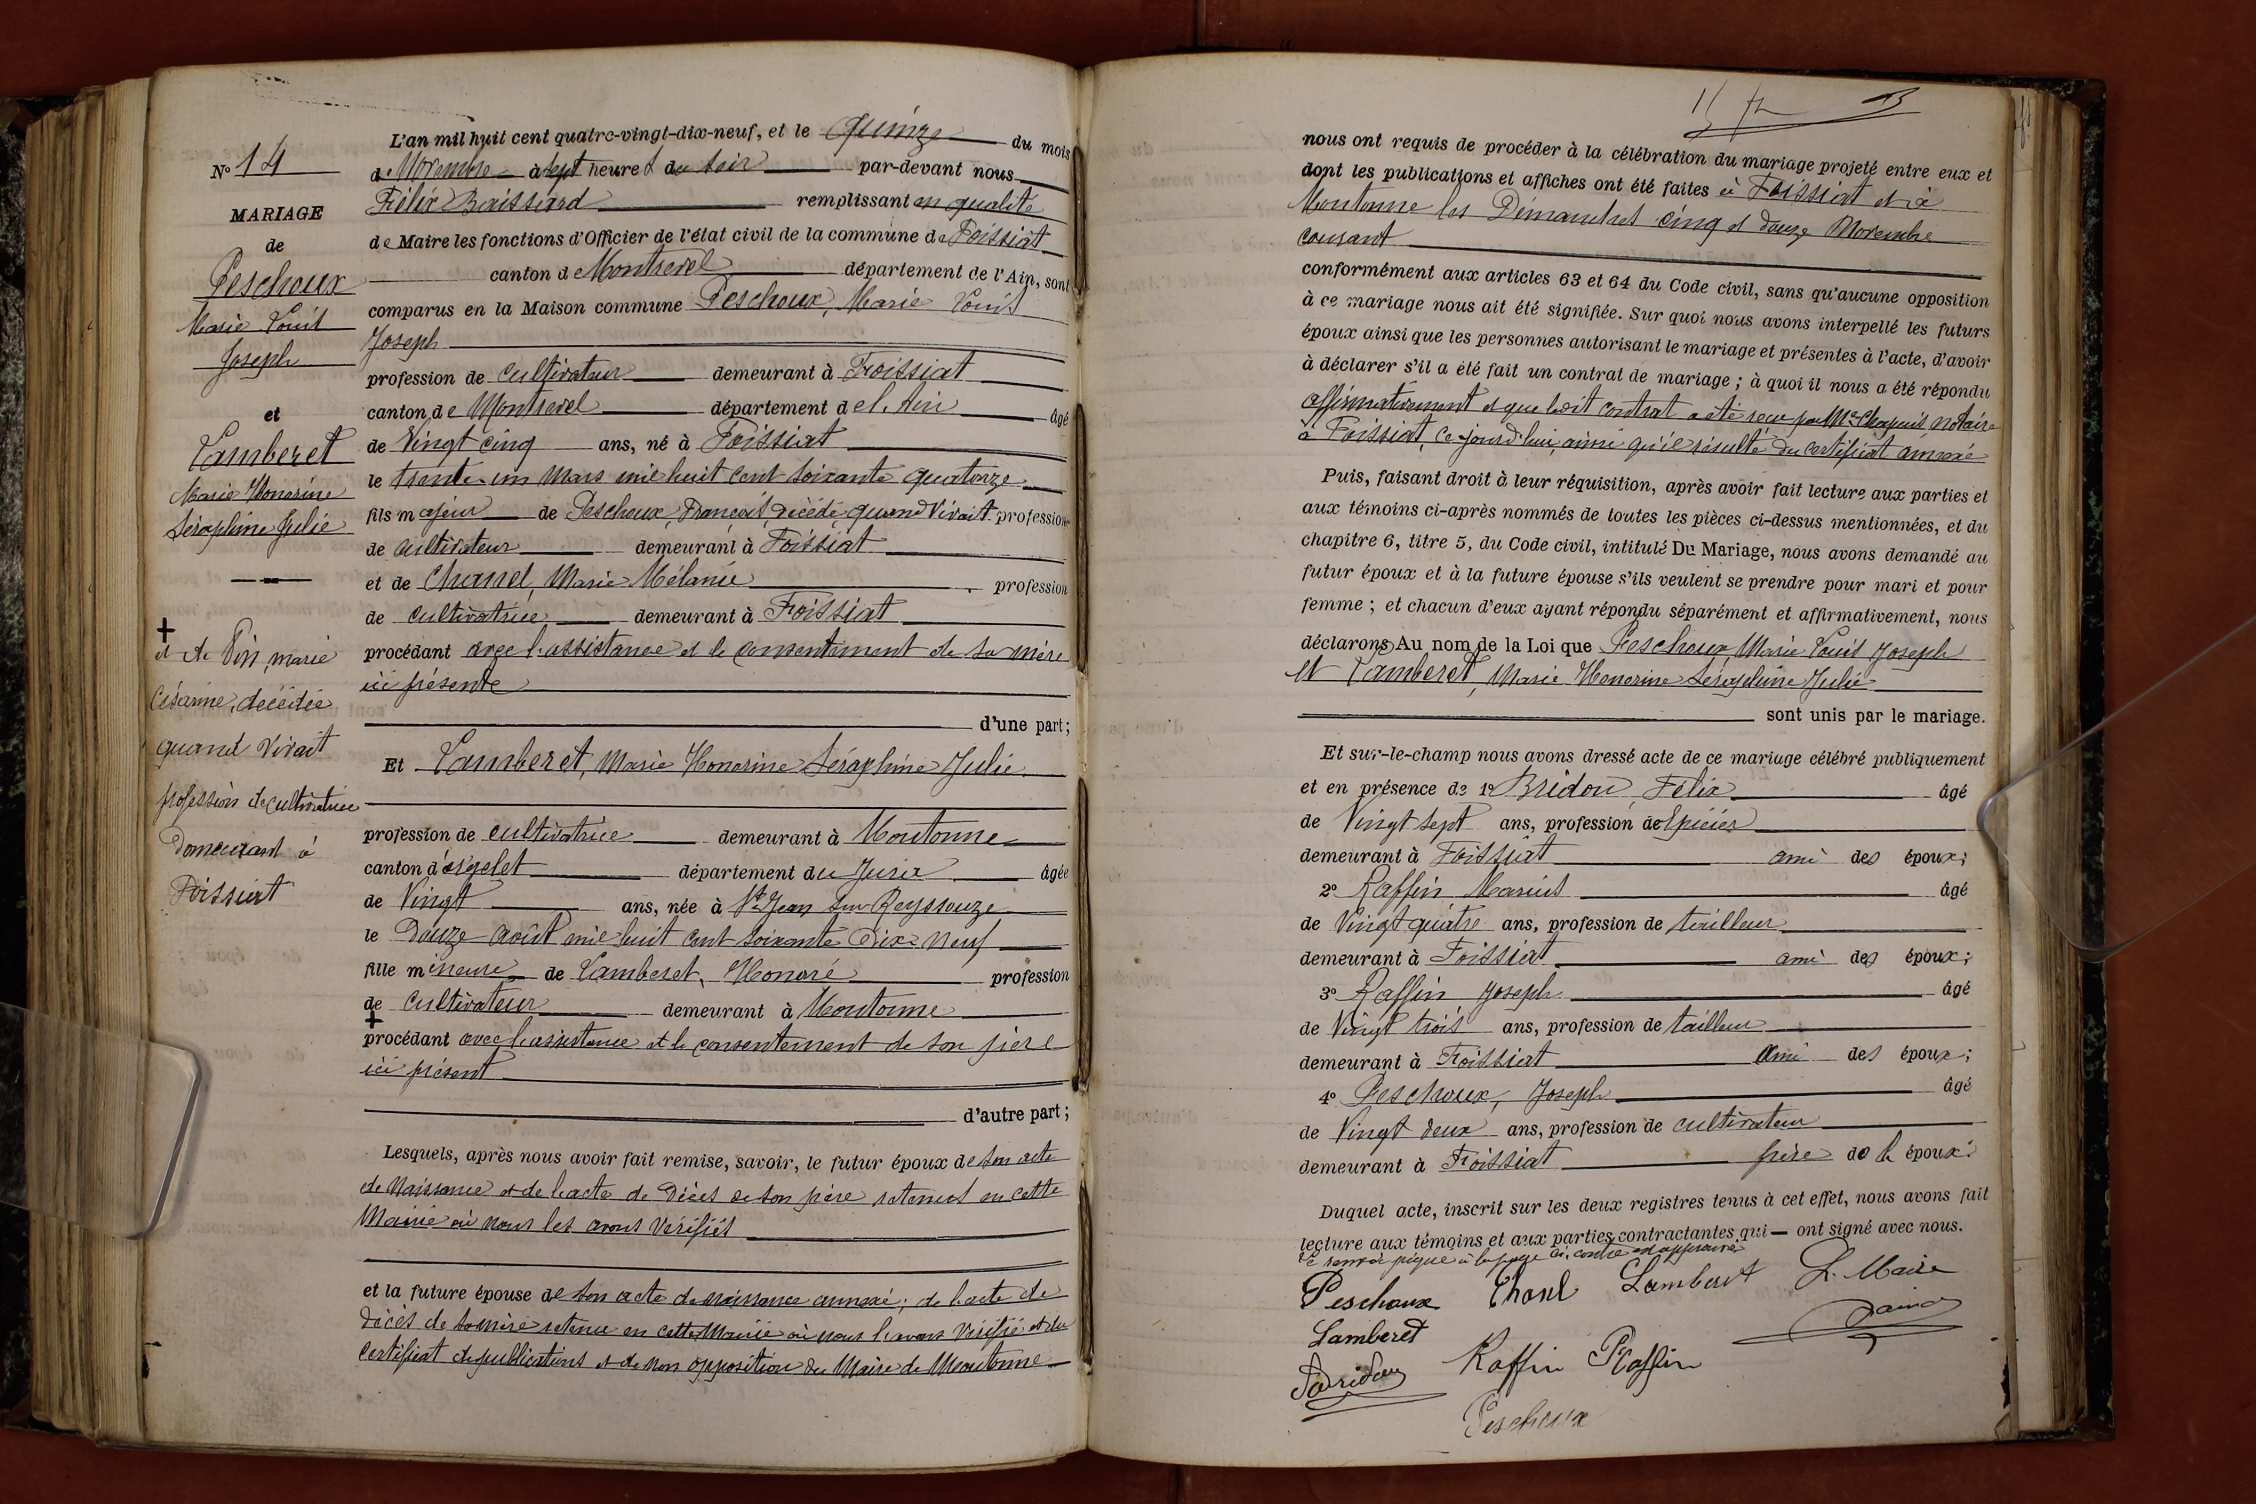 L'an mil huit cent quatre-vingt-dix-neuf, et le quinze du mois
de Novembre à sept heures du soir par-devant nous
Félix Boissard remplissant en qualité
de Maire les fonctions d'Officier de l'état civil de la commune de Foissiat
canton de Montrevel département de l'Ain, sont
comparus en la Maison commune Peschoux, Marie Louis
Joseph
profession de cultivateur demeurant à Foissiat
canton de Montrevel département de l'Ain âgé
de Vingt cinq ans, né à Foissiat
le trente-un Mars mil huit cent soixante quatorze
fils majeur de Peschoux, François, décédé, quand Vivait profession
de cultivateur demeurant à Foissiat
et de Chanel, Marie Mélanie profession
de cultivatrice demeurant à Foissiat
procédant avec l'assistance et le consentement de sa mère
ici présente
d'une part;
Et Lamberet, Marie Honorine Séraphine Julie
profession de cultivatrice demeurant à Moutonne
canton d'orgelet département du Jura âgée
de Vingt ans, née à St Jean sur Reyssouze
le Douze août mil huit cent soixante Dix-neuf
fille mineure de Lamberet, Honoré profession
de cultivateur demeurant à Moutonne
+
procédant avec l'assistance et le consentement de son père
ici présent
d'autre part;
Lesquels, après nous avoir fait remise, savoir, le futur époux de son acte
de Naissance et de l'acte de Décès de son père retenus en cette
Mairie où nous les avons Vérifiés
et la future épouse de son acte de naissance annexé; de l'acte de
décès de sa mère retenu en cette Mairie où nous l'avons Vérifié et du
certificat de publications et de non opposition du Maire de Moutonne
No 14
MARIAGE
de
Peschoux
Marie Louis
Joseph
et
Lamberet
Marie Honorine
Séraphine Julie
+
et de Pin, marie
Césarine, décédée
quand Vivait
profession de cultivatrice
Demeurant à
Foissiat
nous ont requis de procéder à la célébration du mariage projeté entre eux et
dont les publications et affiches ont été faites à Foissiat et à
Moutonne les Dimanches cinq et douze Novembre
courant
conformément aux articles 63 et 64 du Code civil, sans qu'aucune opposition
à ce mariage nous ait été signifiée. Sur quoi nous avons interpellé les futurs
époux ainsi que les personnes autorisant le mariage et présentes à l'acte, d'avoir
à déclarer s'il a été fait un contrat de mariage; à quoi il nous a été répondu
affirmativement et que ledit contrat a été reçu par Me Chapuis notaire
à Foissiat, ce-jourd'hui, ainsi qu'il résulte du certificat annexé
Puis, faisant droit à leur réquisition, après avoir fait lecture aux parties et
aux témoins ci-après nommés de toutes les pièces ci-dessus mentionnées, et du
chapitre 6, titre 5, du Code civil, intitulé Du Mariage, nous avons demandé au
futur époux et à la future épouse s'ils veulent se prendre pour mari et pour
femme; et chacun d'eux ayant répondu séparément et affirmativement, nous
déclarons Au nom de la Loi que Peschoux Marie Louis Joseph
et Lamberet, Marie Honorine Séraphine Julie
sont unis par le mariage.
Et sur-le-champ nous avons dressé acte de ce mariage célébré publiquement
et en présence de 1o Bridon, Félix âgé
de Vingt sept ans, profession de Epicier
demeurant à Foissiat ami des époux;
2o Raffin, Marius âgé
de Vingt quatre ans, profession de tailleur
demeurant à Foissiat ami des époux;
3o Raffin, Joseph âgé
de Vingt trois ans, profession de tailleur
demeurant à Foissiat ami des époux;
4o Peschoux, Joseph âgé
de Vingt deux ans, profession de cultivateur
demeurant à Foissiat frère de l'époux.
Duquel acte, inscrit sur les deux registres tenus à cet effet, nous avons fait
lecture aux témoins et aux parties contractantes qui ont signé avec nous.
Le renvoi piqué à la page ci-contre est approuvé
Peschoux Chanel Lamberet L. Maire
Lamberet
Bridon Raffin Raffin
Peschoux